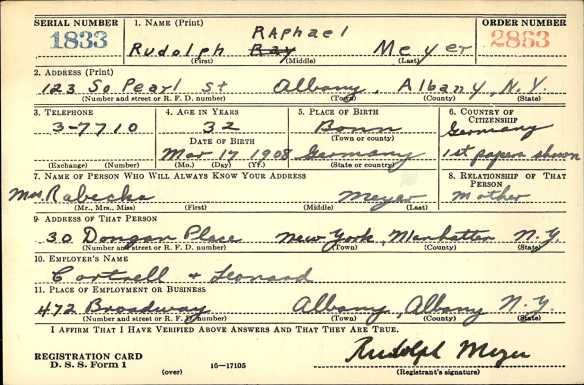 SERIAL NUMBER 1. NAME (Print) ORDER NUMBER
RAphael
1833 Rudolph Ray Meyer 2863
(First) (Middle) (Last)
2. ADDRESS (Print)
123 So Pearl St Albany, Albany, N.Y.
(Number and street or R. F. D. number) (Town) (County) (State)
3. TELEPHONE 4. AGE IN YEARS 5. PLACE OF BIRTH 6. COUNTRY OF CITIZENSHIP
3-7710 32 Bonn Germany
DATE OF BIRTH (Town or county)
Mar 17 1908 Germany 1st papers shown
(Exchange) (Number) (Mo.) (Day) (Yr.) (State or country)
7. NAME OF PERSON WHO WILL ALWAYS KNOW YOUR ADDRESS 8. RELATIONSHIP OF THAT PERSON
Mrs. Rabecka Meyer Mother
(Mr., Mrs., Miss) (First) (Middle) (Last)
9. ADDRESS OF THAT PERSON
30 Dongan Place New York, Manhattan N.Y.
(Number and street or R. F. D. number) (Town) (County) (State)
10. EMPLOYER'S NAME
Cottrell + Leonard
11. PLACE OF EMPLOYMENT OR BUSINESS
472 Broadway Albany, Albany N.Y.
(Number and street or R. F. D. number) (Town) (County) (State)
I AFFIRM THAT I HAVE VERIFIED ABOVE ANSWERS AND THAT THEY ARE TRUE.
REGISTRATION CARD Rudolph Meyer
D. S. S. Form 1 (over) 16—17105 (Registrant's signature)